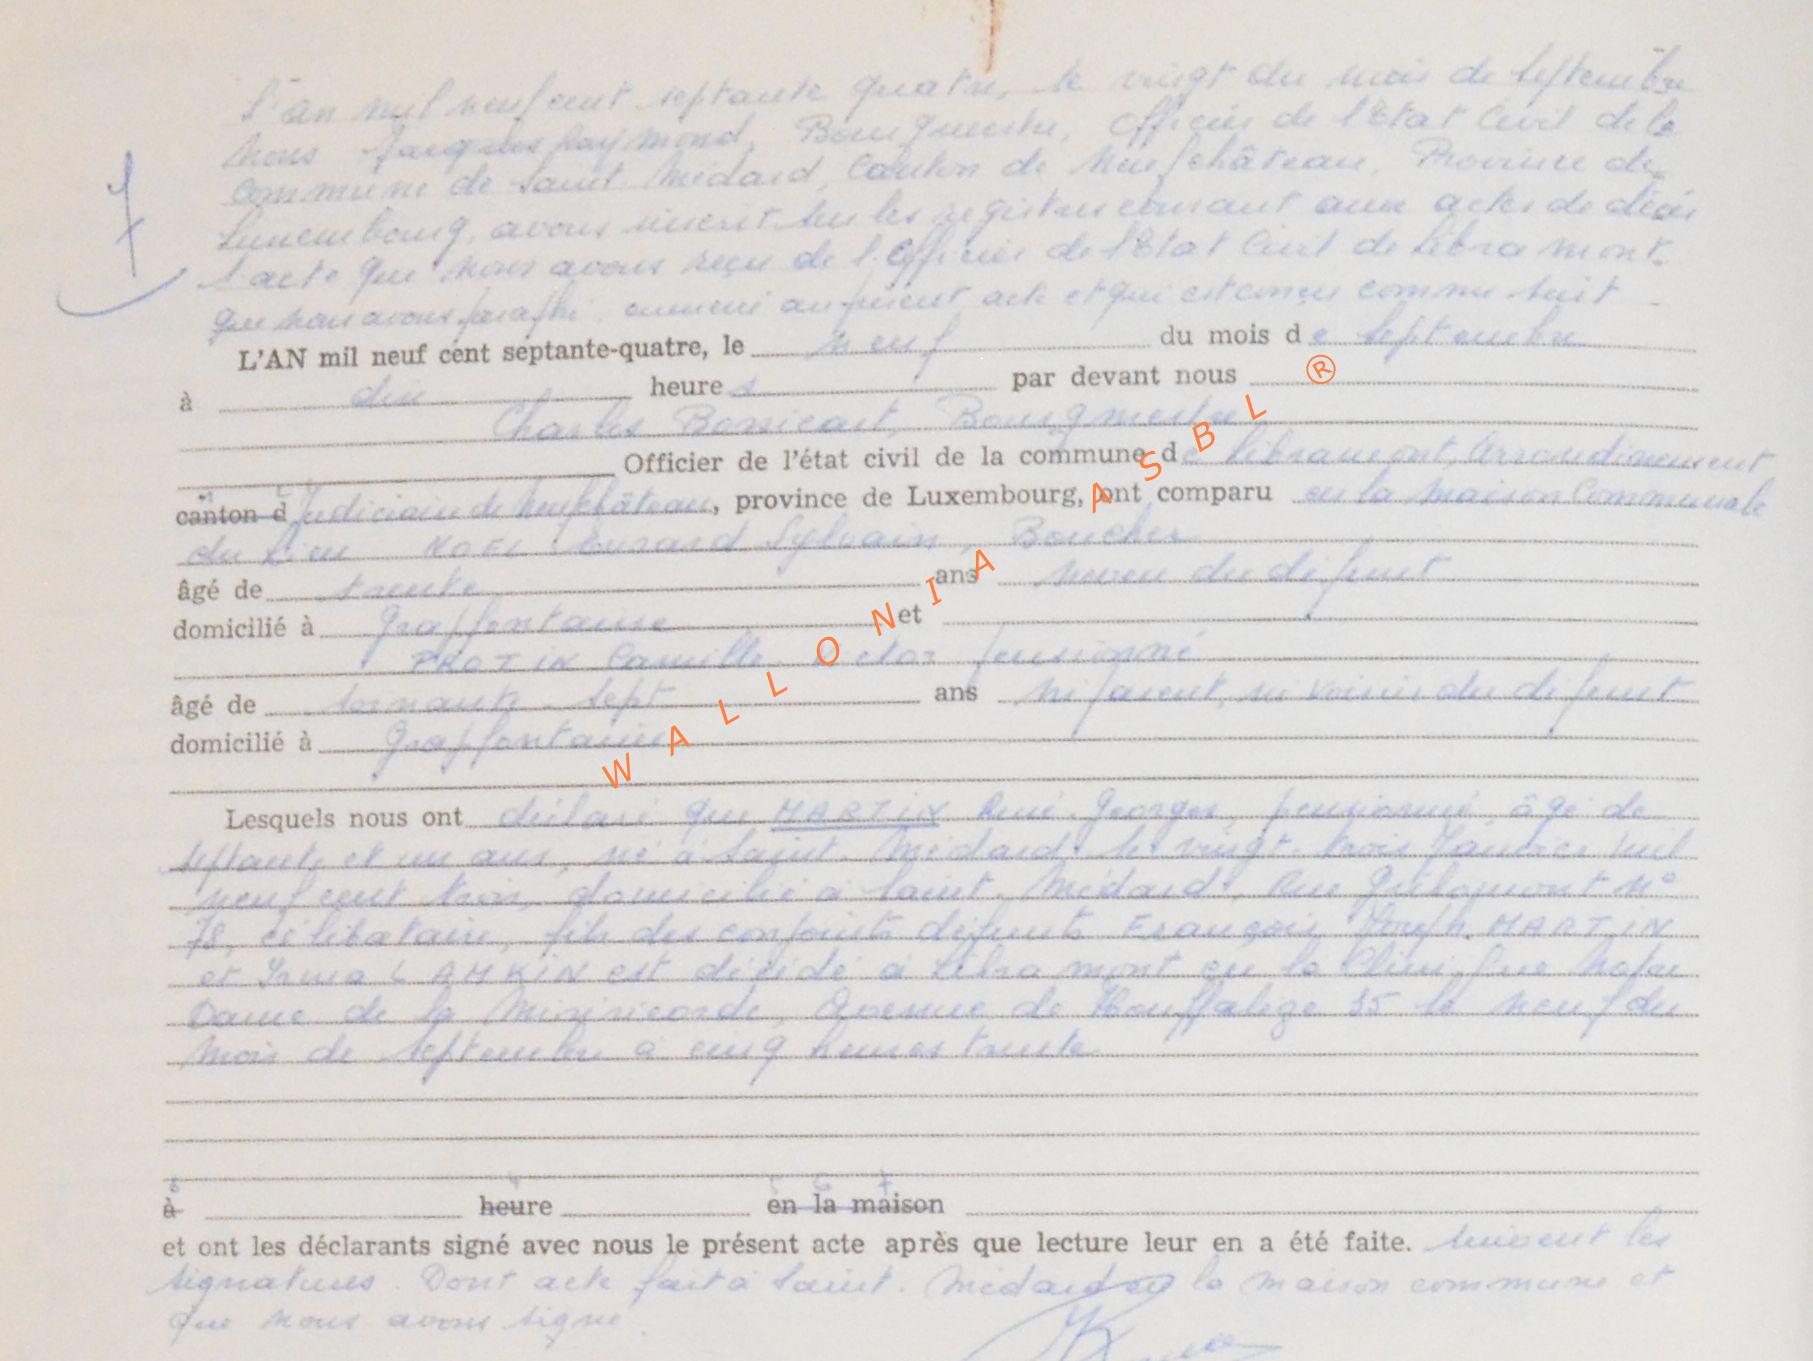 L'an mil neuf cent septante quatre, le vingt du mois de septembre
Nous Jacques Raymond, Bourgmestre, Officier de l'Etat Civil de la
Commune de Saint-Médard, Canton de Neufchâteau, Province de
Luxembourg, avons inscrit sur les registres courant aux actes de décès
7
l'acte que nous avons reçu de l'Officier de l'Etat Civil de Libramont
que nous avons paraphé, annexé au présent acte et qui est conçu comme suit
L'AN mil neuf cent septante-quatre, le neuf du mois de septembre
à dix heures par devant nous
Charles Bossicart, Bourgmestre
Officier de l'état civil de la commune de Libramont, Arrondissement
canton d Judiciaire de Neufchâteau, province de Luxembourg, ont comparu en la Maison Communale
du Lieu NOEL Sylvain, Boucher
âgé de trente ans neveu du défunt
domicilié à Grapfontaine et
PROTIN Camille pensionné
âgé de soixante-sept ans ni parent, ni voisin du défunt
domicilié à Grapfontaine
Lesquels nous ont déclaré que MARTIN René Georges, pensionné, âgé de
septante et un ans, né à Saint-Médard le vingt-trois Janvier mil
neuf cent trois, domicilié à Saint-Médard, Rue N°
78, célibataire, fils des conjoints défunts François Joseph MARTIN
et Irma LAMKIN est décédé à Libramont en la Clinique Notre
Dame de la Miséricorde, Avenue de Houffalize 35 le neuf du
mois de septembre à cinq heures trente
à heure en la maison
et ont les déclarants signé avec nous le présent acte après que lecture leur en a été faite. suivent les
signatures. Dont acte fait à Saint-Médard en la maison commune et
que nous avons signé
WALLONIA ASBL ®